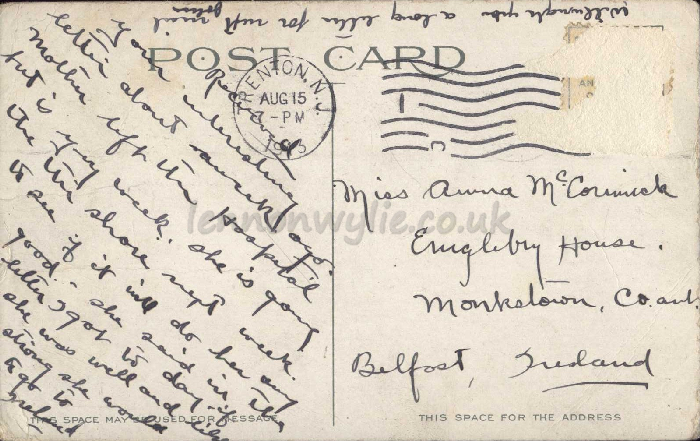 Will write you a long letter for next mail
POST CARD
TRENTON, N.J.
AUG 15
7-PM
Received
your interesting
letter about
Mother left the hospital
but is very weak. She is going
the the shore next week
to see if it will do her any
good. - She said in her
letter I got to day if
she was well and
strong she would like
to go to
Ireland
Miss Anna McCormick
House.
Monkstown, Co. ant.
Belfast, Ireland
THIS SPACE MAY BE USED FOR MESSAGE
THIS SPACE FOR THE ADDRESS
lennonwylie.co.uk